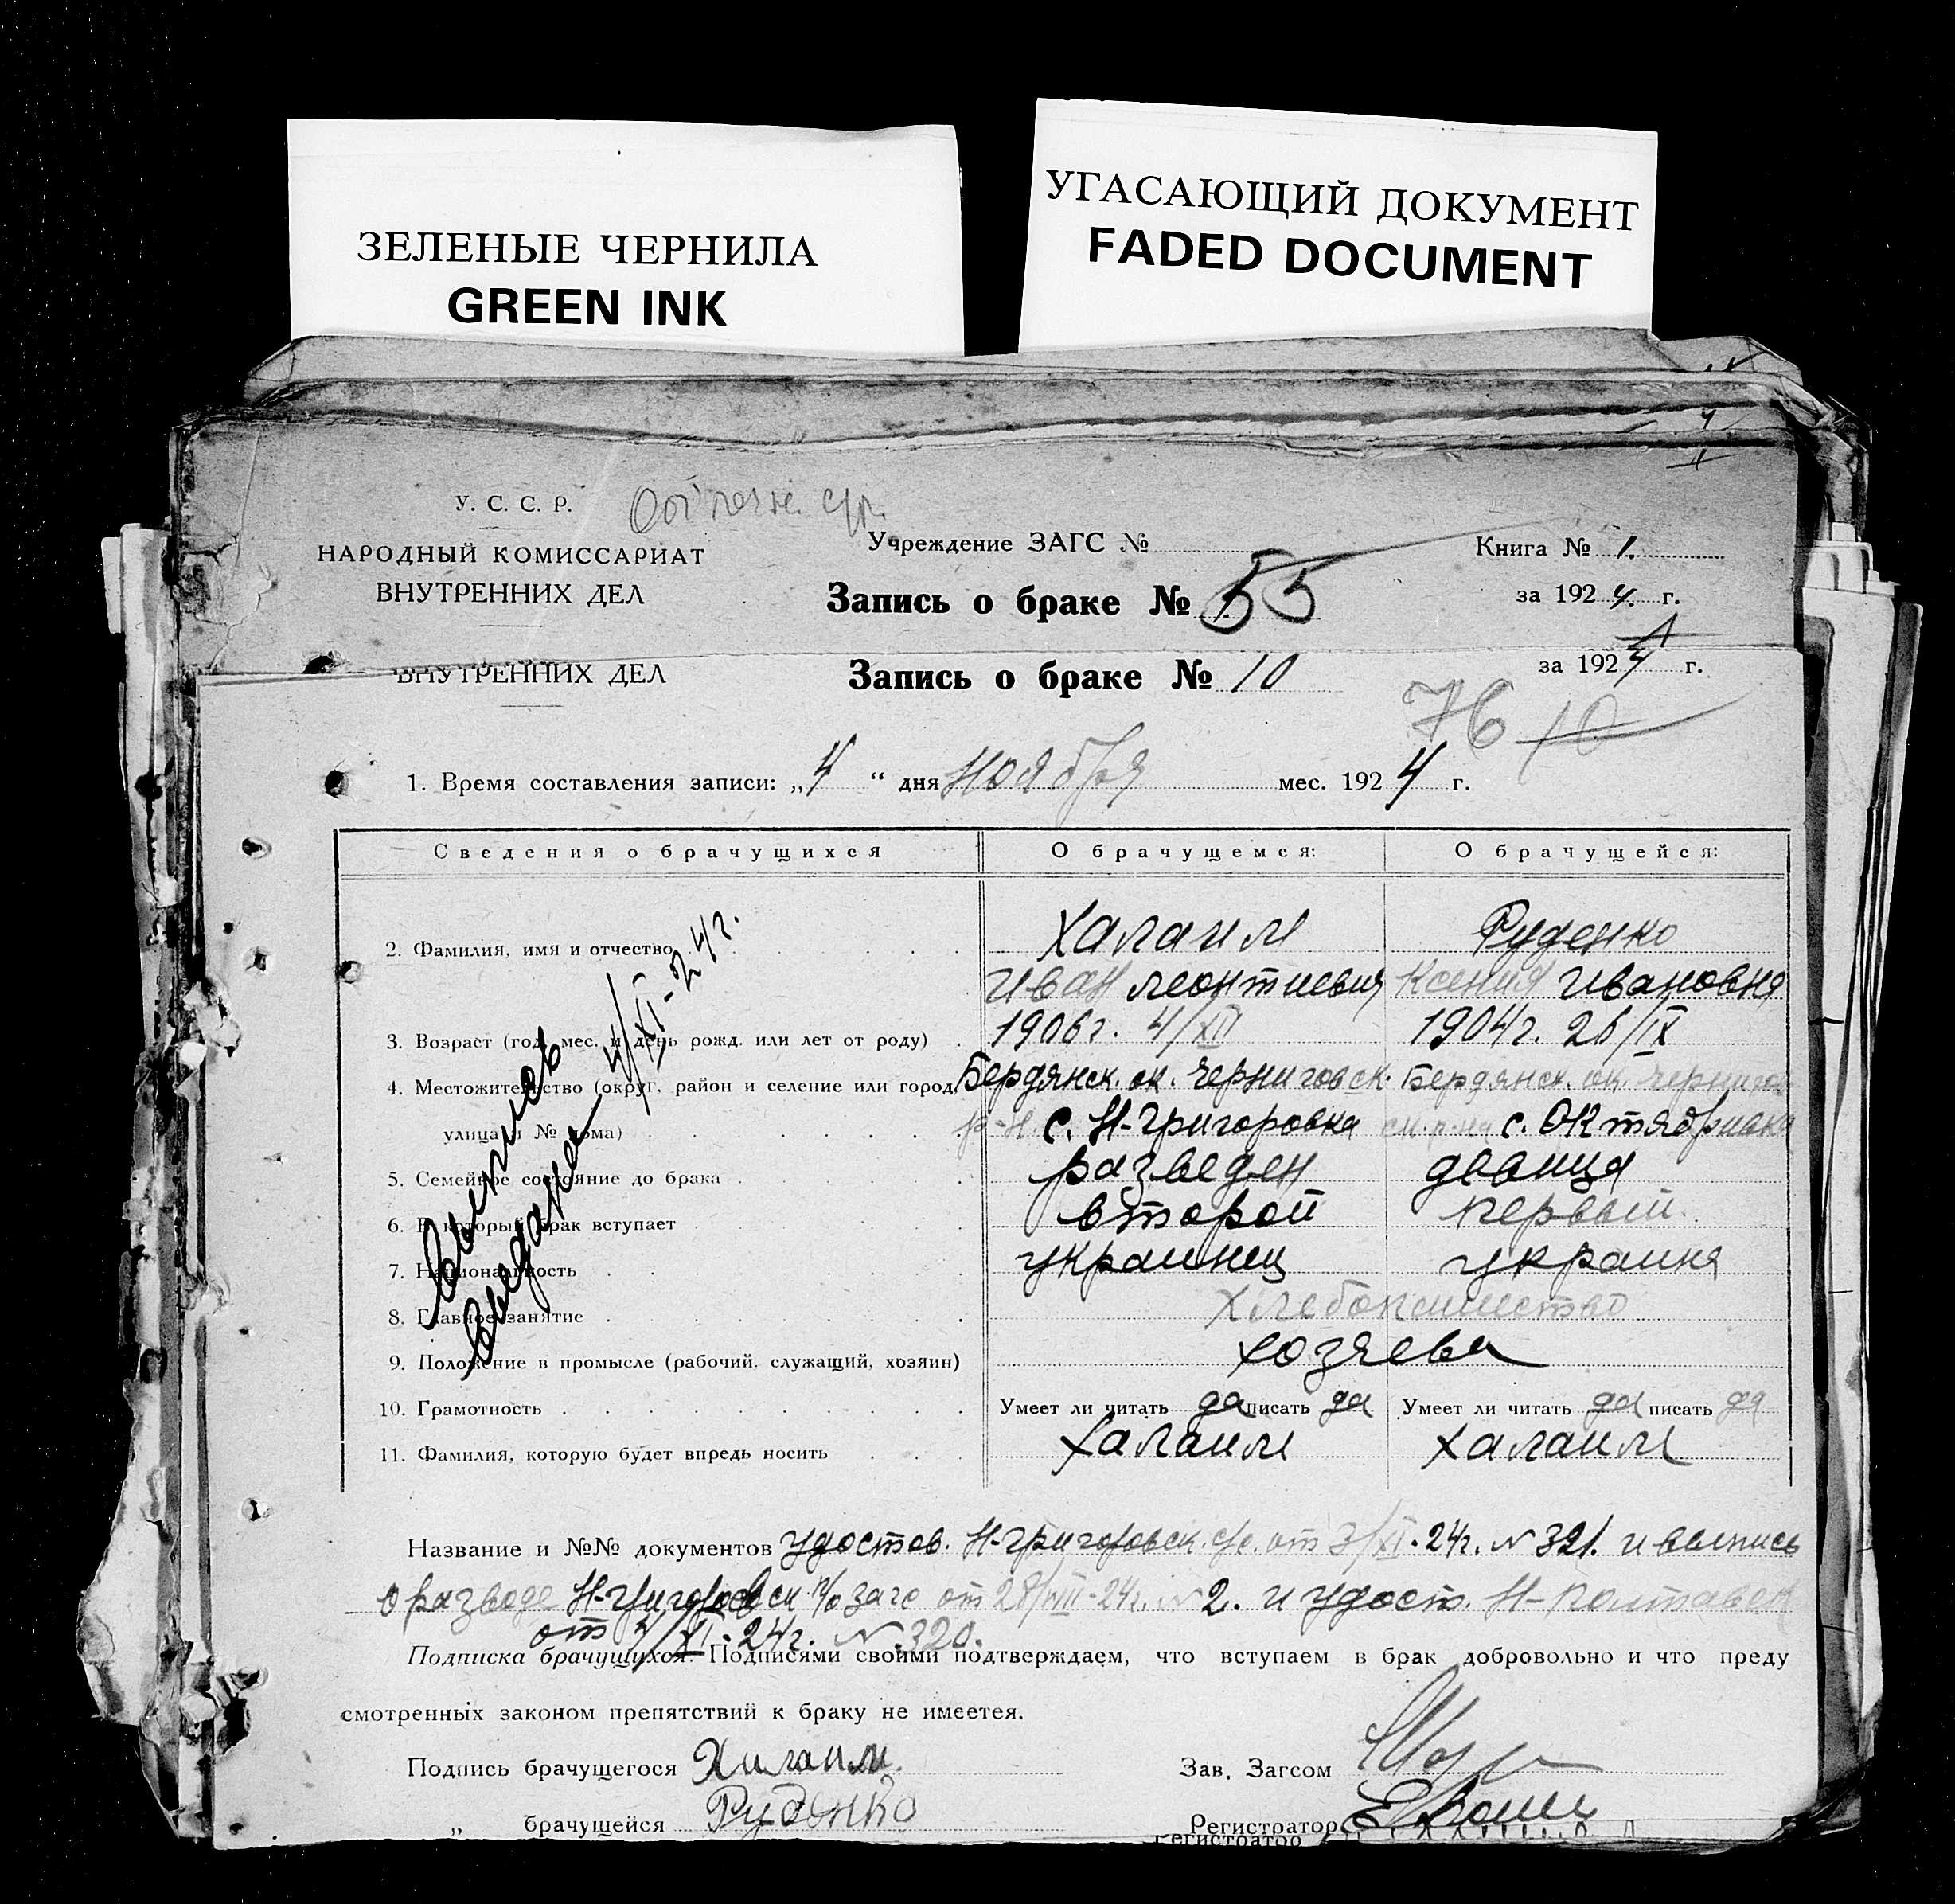 ЗЕЛЕНЫЕ ЧЕРНИЛА
GREEN INK
УГАСАЮЩИЙ ДОКУМЕНТ
FADED DOCUMENT
У. С. С. Р.
НАРОДНЫЙ КОМИССАРИАТ
ВНУТРЕННИХ ДЕЛ
Учреждение ЗАГС №
Книга № 1.
Запись о браке № 55
за 1924. г.
ВНУТРЕННИХ ДЕЛ
Запись о браке № 10
за 1924 г.
76 10
1. Время составления записи: „4“ дня ноября мес. 1924 г.
Сведения о брачущихся О брачущемся: О брачущейся:
2. Фамилия, имя и отчество Халаим Руденко
Иван Леонтиевич Ксения Ивановна
3. Возраст (год, мес. и день рожд. или лет от роду) 1906г. 4/XII 1904г. 26/IX
4. Местожительство (округ, район и селение или город, Бердянск. ок. Черниговск. Бердянск. ок. Чернигов
улица и № дома) р-н с. Н-Григоровка ск. р-на с. Октябриовка
5. Семейное состояние до брака разведен девица
6. В который брак вступает второй первый
7. Национальность украинец украинка
8. Главное занятие хлебопашество
9. Положение в промысле (рабочий, служащий, хозяин) хозяева
10. Грамотность Умеет ли читать да писать да Умеет ли читать да писать да
11. Фамилия, которую будет впредь носить Халаим Халаим
Выпись
выдана 4/XI-24г.
Название и №№ документов удостов. Н-Григоровск. с/с. от 3/XI-24г. № 321. и выпись
о разводе Н-Григоровск п/о загс от 28/VIII-24г. № 2. и удост. Н-Полтавск
от 4/XI-24г. №320.
Подписка брачущихся: Подписями своими подтверждаем, что вступаем в брак добровольно и что преду
смотренных законом препятствий к браку не имеетея.
Подпись брачущегося Халаим.
Зав. Загсом
„ брачущейся Руденко
Регистратор
Регистратор